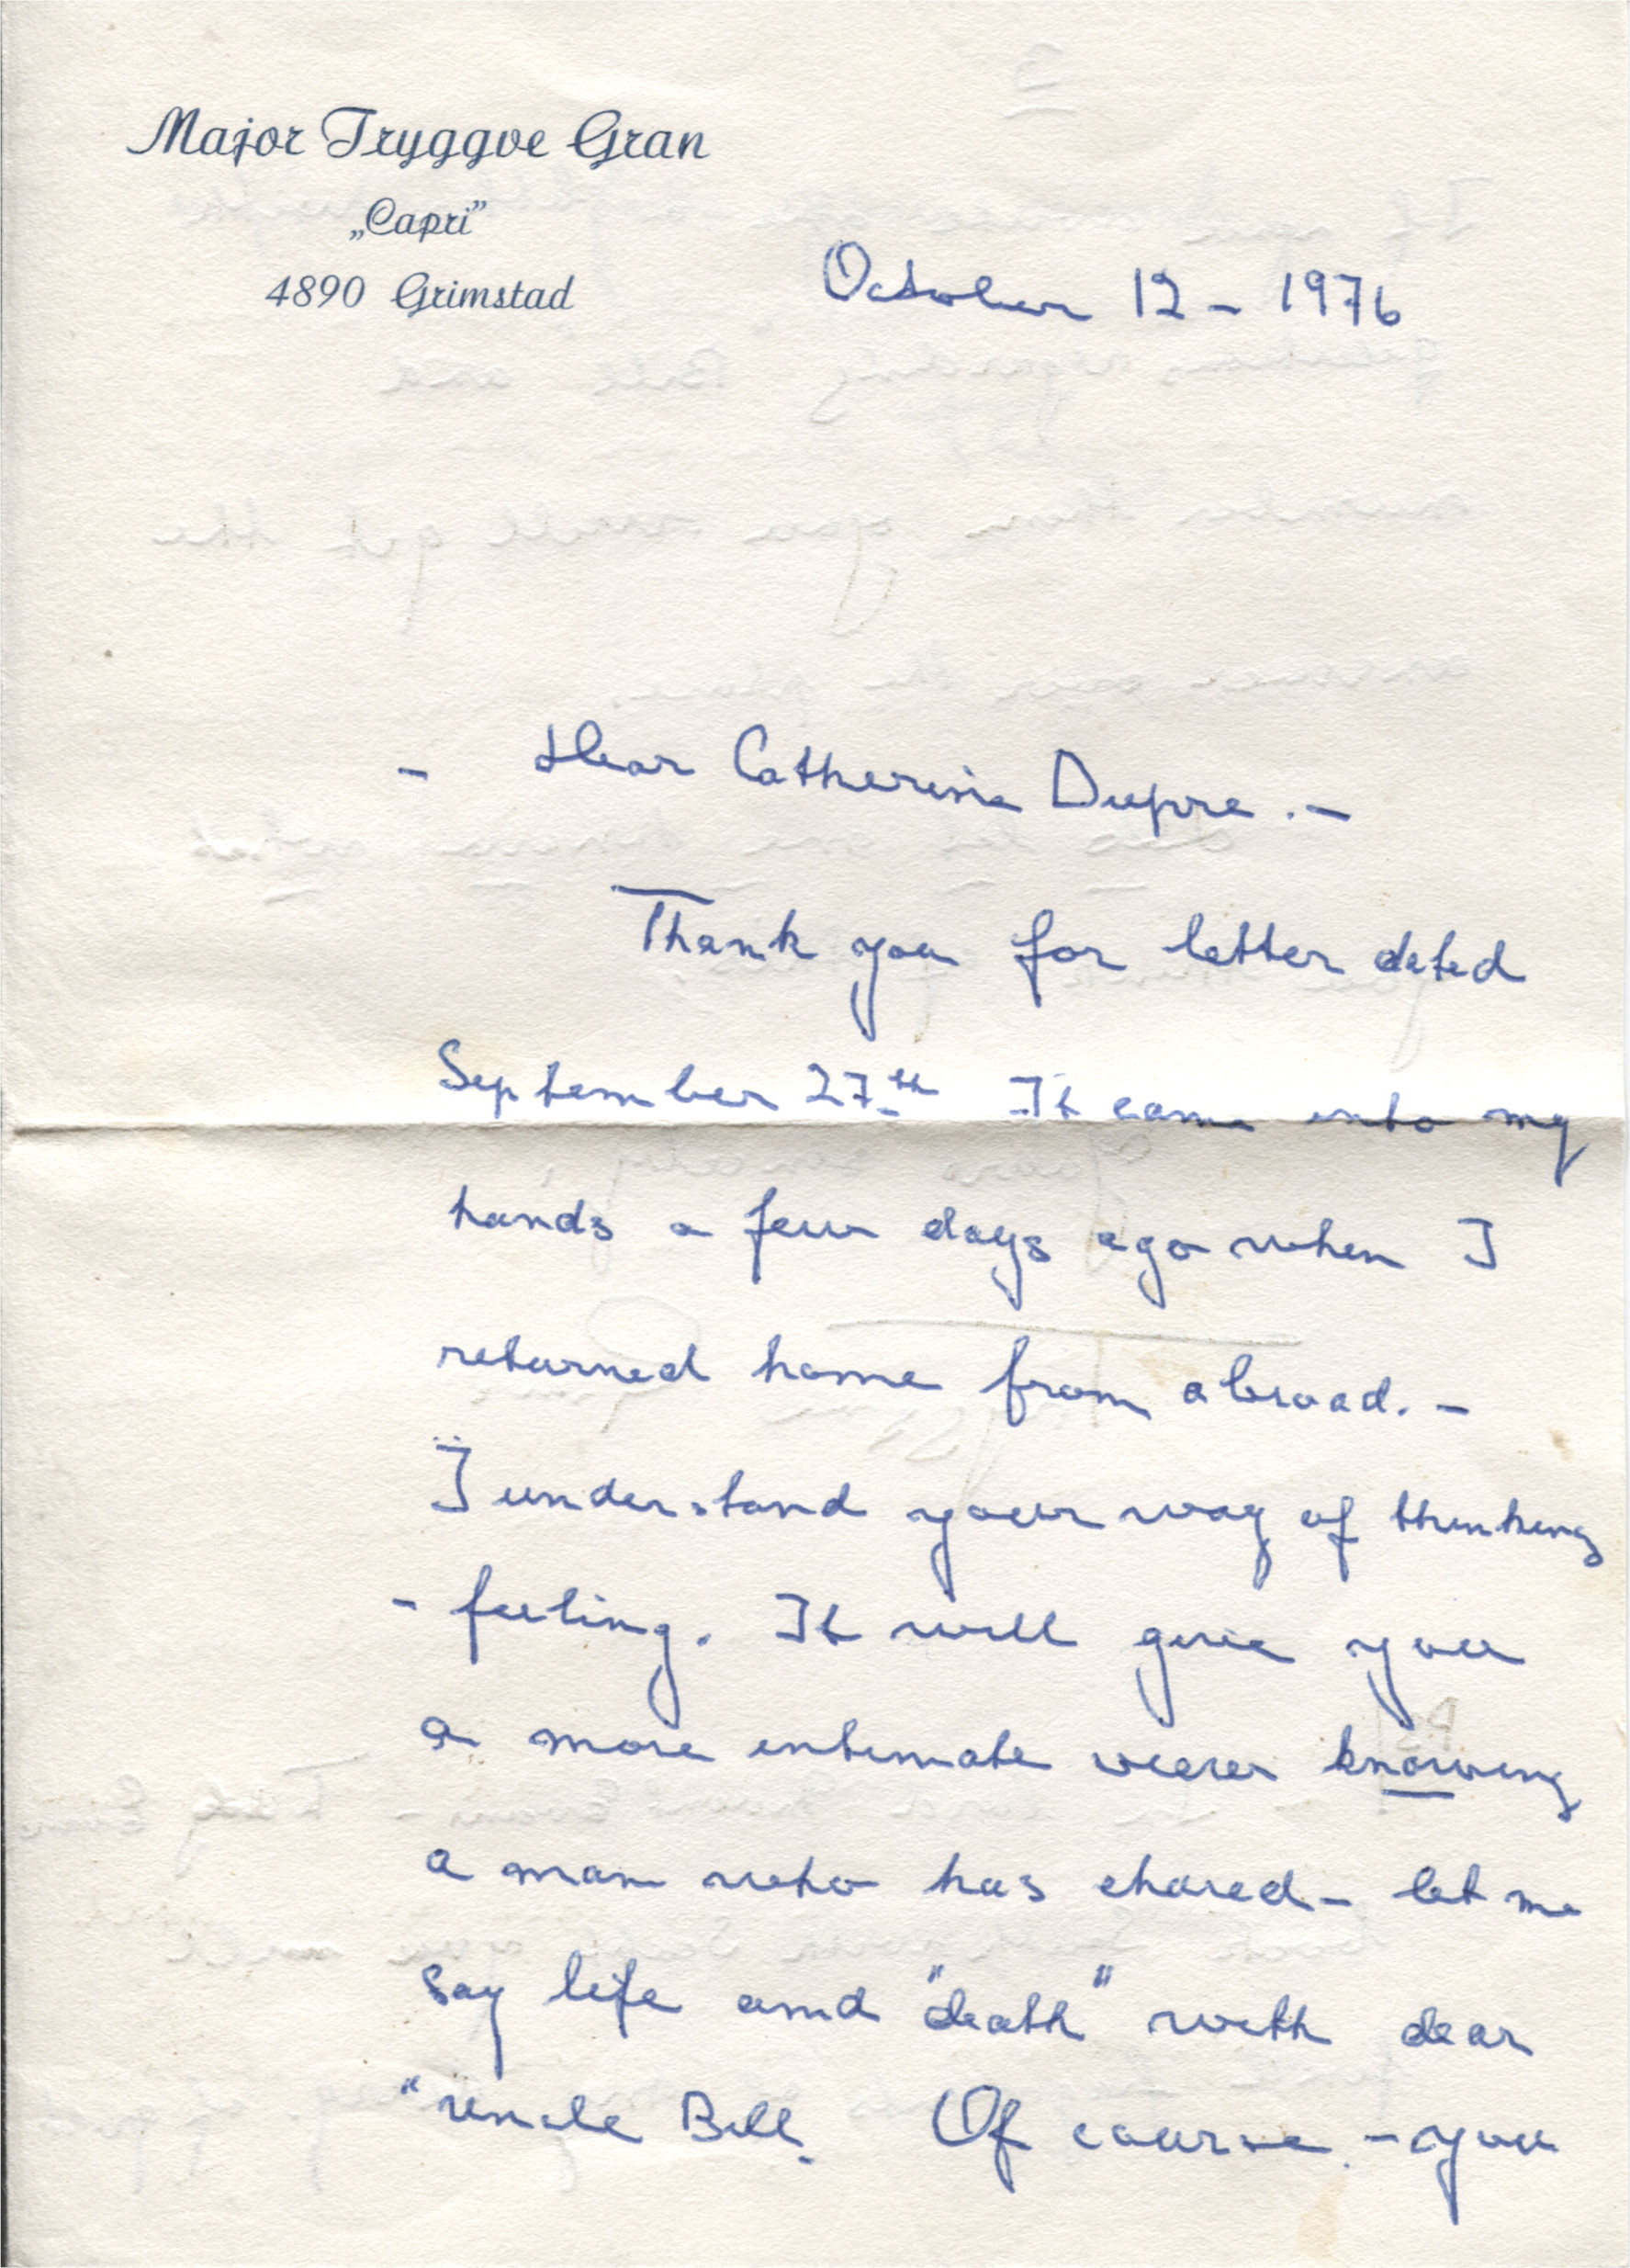 Major Tryggve Gran
„Capri”
4890 Grimstad
October 12 - 1976
- Dear Catherine Dupre . -
Thank you for letter dated
September 27th It came into my
hands a few days ago when I
returned home from abroad. -
I understand your way of thinking
- feeling. It will give you
a more intimate view knowing
a man who has shared - let me
say life and "death" with dear
"uncle Bill. Of course - you